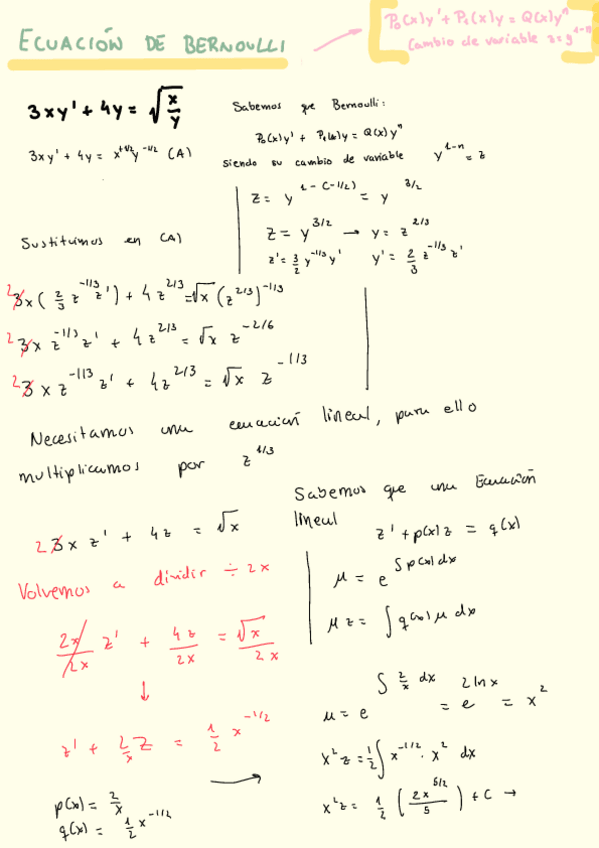 ECUACIÓN DE BERNOULLI
P₀(x)y' + P₁(x)y = Q(x)yⁿ
Cambio de variable z = y^(1-n)
3xy' + 4y = √(x/y)
3xy' + 4y = x^(+1/2) y^(-1/2) (A)
Sabemos que Bernoulli:
P₀(x)y' + P₁(x)y = Q(x)yⁿ
siendo su cambio de variable y^(1-n) = z
z = y^(1-(-1/2)) = y^(3/2)
z = y^(3/2) → y = z^(2/3)
z' = 3/2 y^(-1/3) y' y' = 2/3 z^(-1/3) z'
Sustituimos en (A)
2 3x (2/3 z^(-1/3) z') + 4 z^(2/3) = √x (z^(2/3))^(-1/3)
2 3x z^(-1/3) z' + 4 z^(2/3) = √x z^(-2/6)
2 3x z^(-1/3) z' + 4z^(2/3) = √x z^(-1/3)
Necesitamos una ecuación lineal, para ello
multiplicamos por z^(1/3)
2 3x z' + 4z = √x
Volvemos a dividir ÷ 2x
2x/2x z' + 4z/2x = √x/2x
↓
z' + 2/x z = 1/2 x^(-1/2)
p(x) = 2/x
q(x) = 1/2 x^(-1/2)
→
Sabemos que una Ecuación
lineal
z' + p(x) z = q(x)
μ = e^(∫p(x)dx)
μ z = ∫ q(x) μ dx
μ = e^(∫ 2/x dx) = e^(2 ln x) = x²
x² z = 1/2 ∫ x^(-1/2) · x² dx
x² z = 1/2 (2x^(5/2)/5) + C →